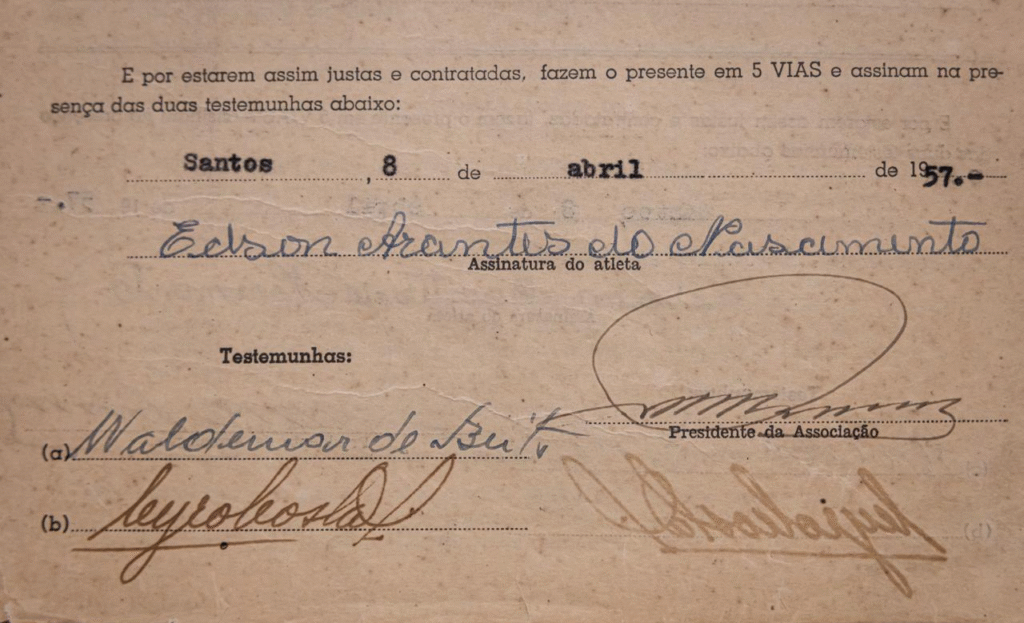 E por estarem assim justas e contratadas, fazem o presente em 5 VIAS e assinam na pre-
sença das duas testemunhas abaixo:
Santos, 8 de abril de 1957.-
Edson Arantes do Nascimento
Assinatura do atleta
Testemunhas:
Presidente da Associação
(a) Waldemar de Brito
(b)